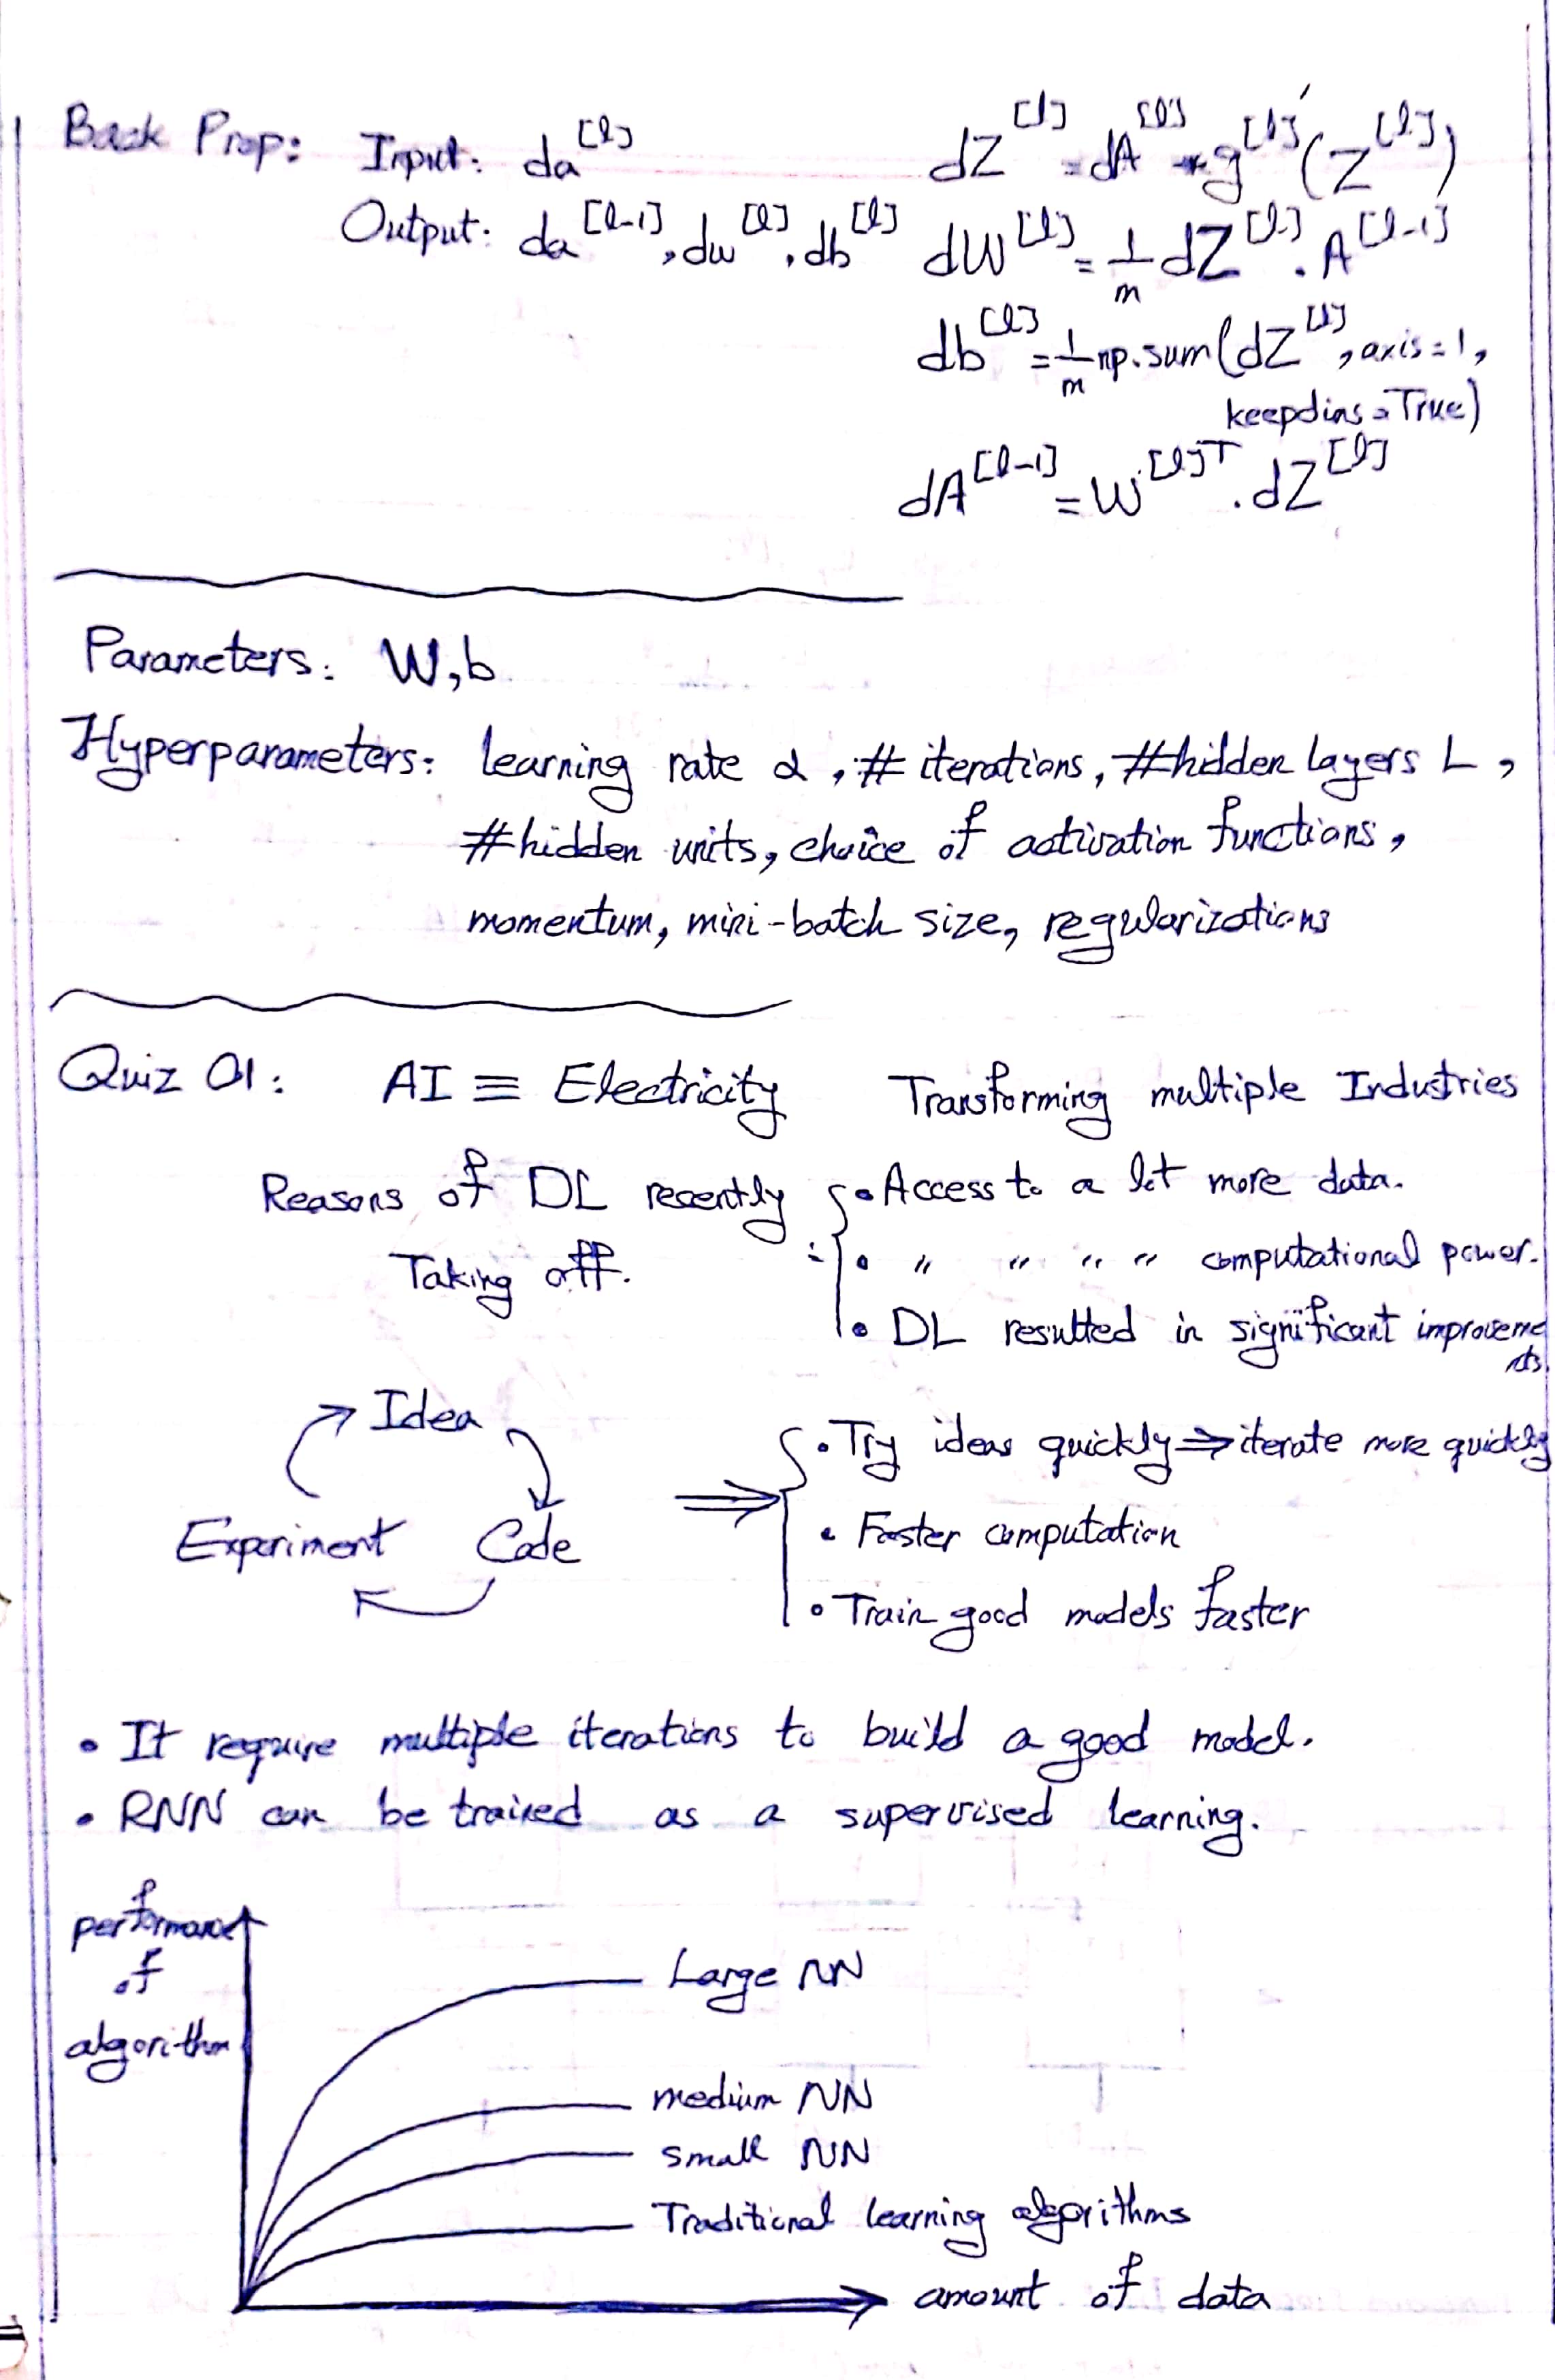 Back Prop: Input: da^[l]    dZ^[l] = dA^[l] * g^[l]'(Z^[l])
Output: da^[l-1], dw^[l], db^[l]    dW^[l] = 1/m dZ^[l] . A^[l-1]
db^[l] = 1/m np.sum(dZ^[l], axis=1,
keepdims=True)
dA^[l-1] = W^[l]T . dZ^[l]
Parameters: W,b
Hyperparameters: learning rate α, # iterations, #hidden layers L,
#hidden units, choice of activation functions,
momentum, mini-batch size, regularizations
Quiz 01: AI ≡ Electricity    Transforming multiple Industries
Reasons of DL recently
Taking off. :
• Access to a lot more data.
• " " " " computational power.
• DL resulted in significant improvements.
Idea
Experiment Code
⇒
• Try ideas quickly ⇒ iterate more quickly
• Faster computation
• Train good models faster
• It require multiple iterations to build a good model.
• RNN can be trained as a supervised learning.
performance
of
algorithm
Large NN
medium NN
small NN
Traditional learning algorithms
amount of data